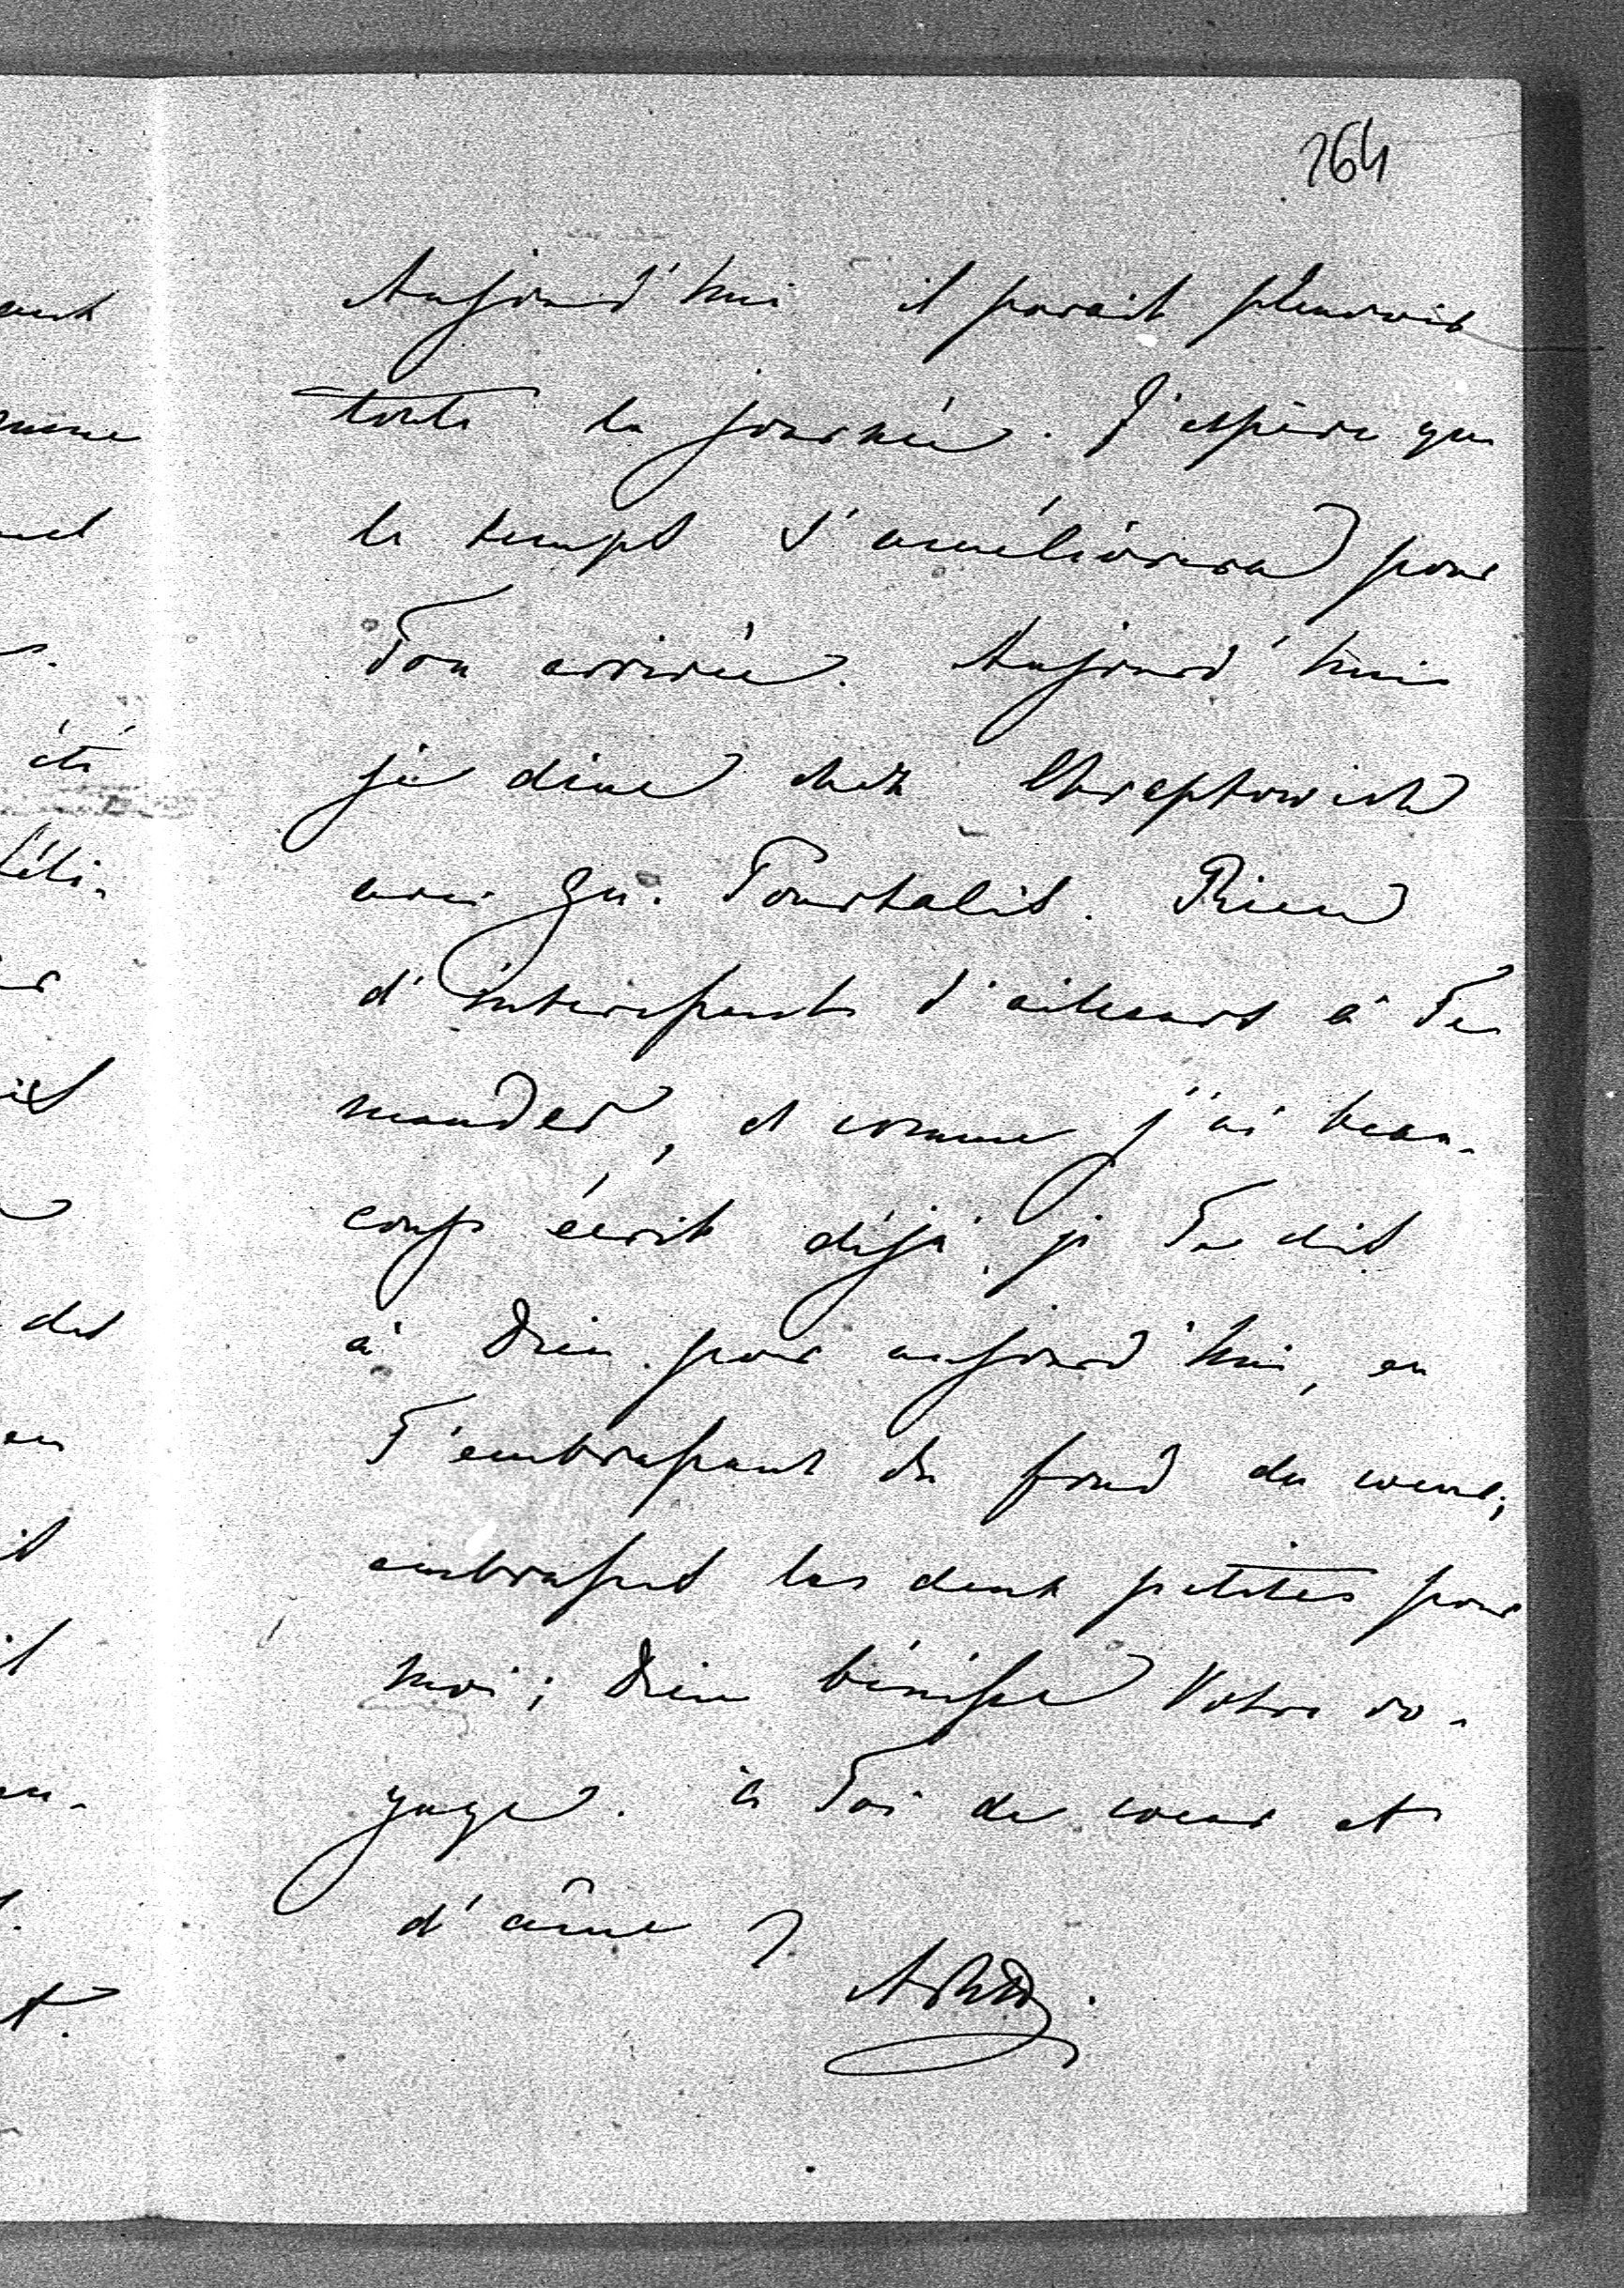 264
Aujourd'hui il parait pleuvoir
toute la journée. J'espère que
le temps s'améliorera pour
Ton arrivée. Aujourd'hui
je dine chez Chreptowich
avec Gu. Pourtalès. Rien
d'interessant d'ailleurs à Te
mander, et comme j'ai beau-
coup écrit déjà je Te dis
à Dieu pour aujourd'hui, en
T'embrassant du fond du coeur;
embrasses les deux petites pour
moi; Dieu bénisse Votre vo-
yage. à Toi de coeur et
d'âme